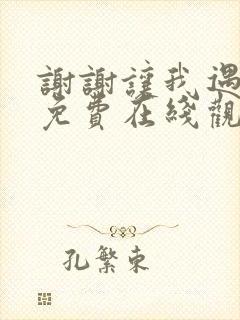 謝謝讓我遇
免費在綫觀
孔繁東